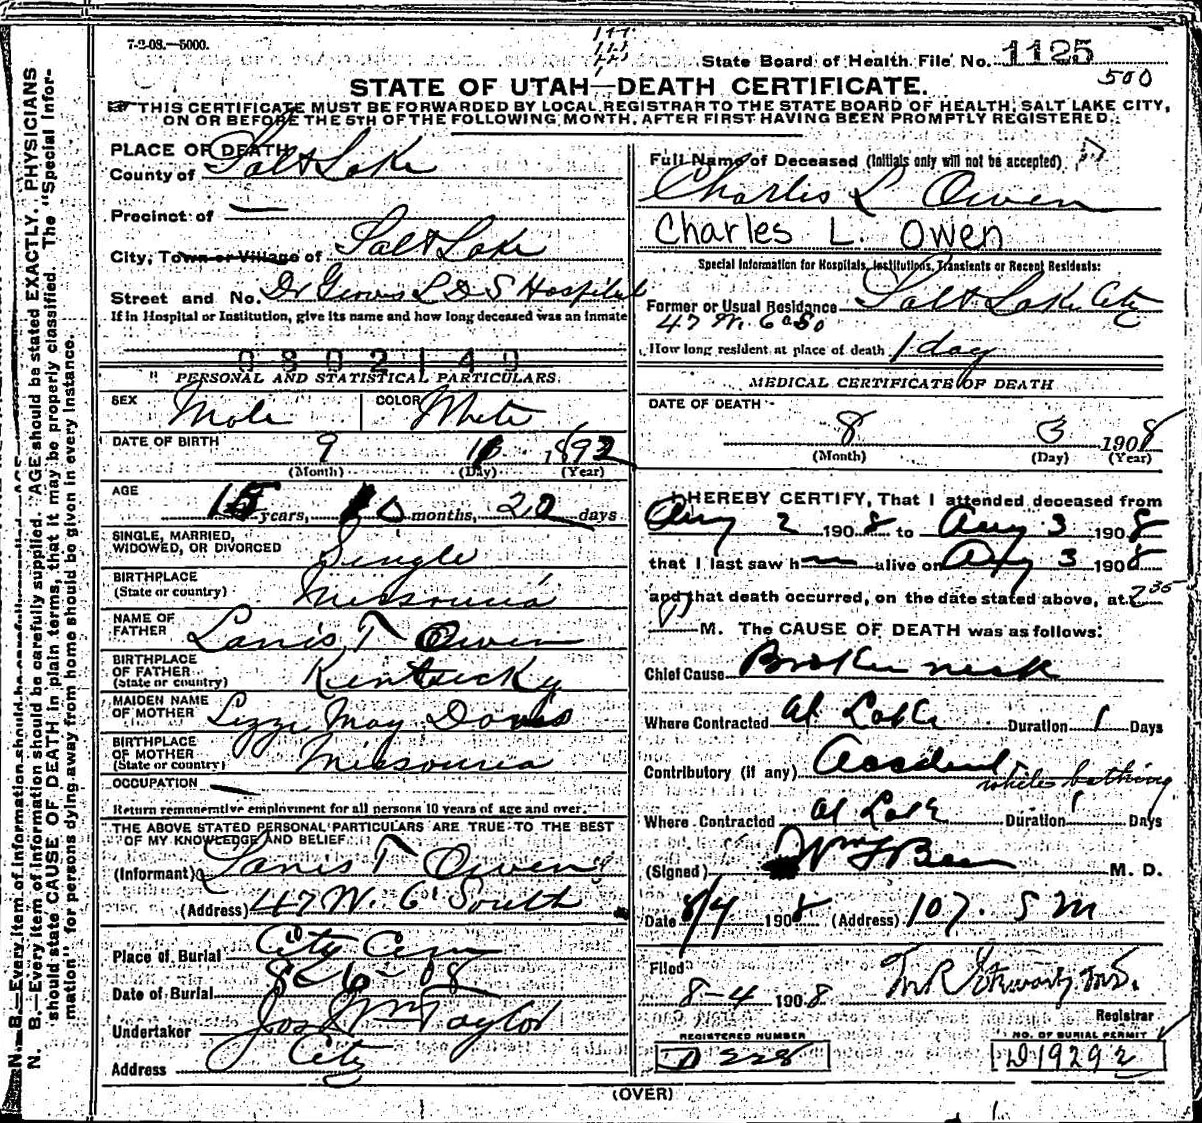 7-2-08.—5000.
State Board of Health File No. 1125
500
STATE OF UTAH—DEATH CERTIFICATE.
THIS CERTIFICATE MUST BE FORWARDED BY LOCAL REGISTRAR TO THE STATE BOARD OF HEALTH, SALT LAKE CITY,
ON OR BEFORE THE 5TH OF THE FOLLOWING MONTH, AFTER FIRST HAVING BEEN PROMPTLY REGISTERED.
N. B.—Every item of information should be carefully supplied. AGE should be stated EXACTLY. PHYSICIANS
should state CAUSE OF DEATH in plain terms, that it may be properly classified. The "Special Infor-
mation" for persons dying away from home should be given in every instance.
PLACE OF DEATH
County of Salt Lake
Precinct of —
City, Town or Village of Salt Lake
Street and No. Dr Groves L D S Hospital
If in Hospital or Institution, give its name and how long deceased was an inmate
0802149
PERSONAL AND STATISTICAL PARTICULARS.
SEX Male COLOR White
DATE OF BIRTH 9 1892
(Month) (Day) (Year)
AGE
15 years, 10 months, 20 days
SINGLE, MARRIED,
WIDOWED, OR DIVORCED Single
BIRTHPLACE
(State or country) Missouria
NAME OF
FATHER Lanis T Owen
BIRTHPLACE
OF FATHER
(State or country) Kentucky
MAIDEN NAME
OF MOTHER Lizzi May Davis
BIRTHPLACE
OF MOTHER
(State or country) Missouria
OCCUPATION —
Return remunerative employment for all persons 10 years of age and over.
THE ABOVE STATED PERSONAL PARTICULARS ARE TRUE TO THE BEST
OF MY KNOWLEDGE AND BELIEF.
(Informant) Lanis T Owen
(Address) 47 W. 6 South
Place of Burial City Cem
Date of Burial 8-6-08
Undertaker Jos Wm Taylor
Address City
Full Name of Deceased (Initials only will not be accepted)
Charlis L Owen
Charles L. Owen
Special Information for Hospitals, Institutions, Transients or Recent Residents:
Former or Usual Residence Salt Lake City
47 W. 6 So
How long resident at place of death 1 day
MEDICAL CERTIFICATE OF DEATH
DATE OF DEATH
8 3 1908
(Month) (Day) (Year)
I HEREBY CERTIFY, That I attended deceased from
Aug 2 1908 to Aug 3 1908
that I last saw h m alive on Aug 3 1908
and that death occurred, on the date stated above, at 2 35
P M. The CAUSE OF DEATH was as follows:
Chief Cause Broken neck
Where Contracted at Lake Duration 1 Days
Contributory (if any) Accident while bathing
Where Contracted at Lake Duration 1 Days
(Signed) Wm F Beer M. D.
Date 8/4 1908 (Address) 107. S M
Filed
8-4 1908 Stewart M.D.
Registrar
REGISTERED NUMBER
D 228
NO. OF BURIAL PERMIT
D19292
(OVER)